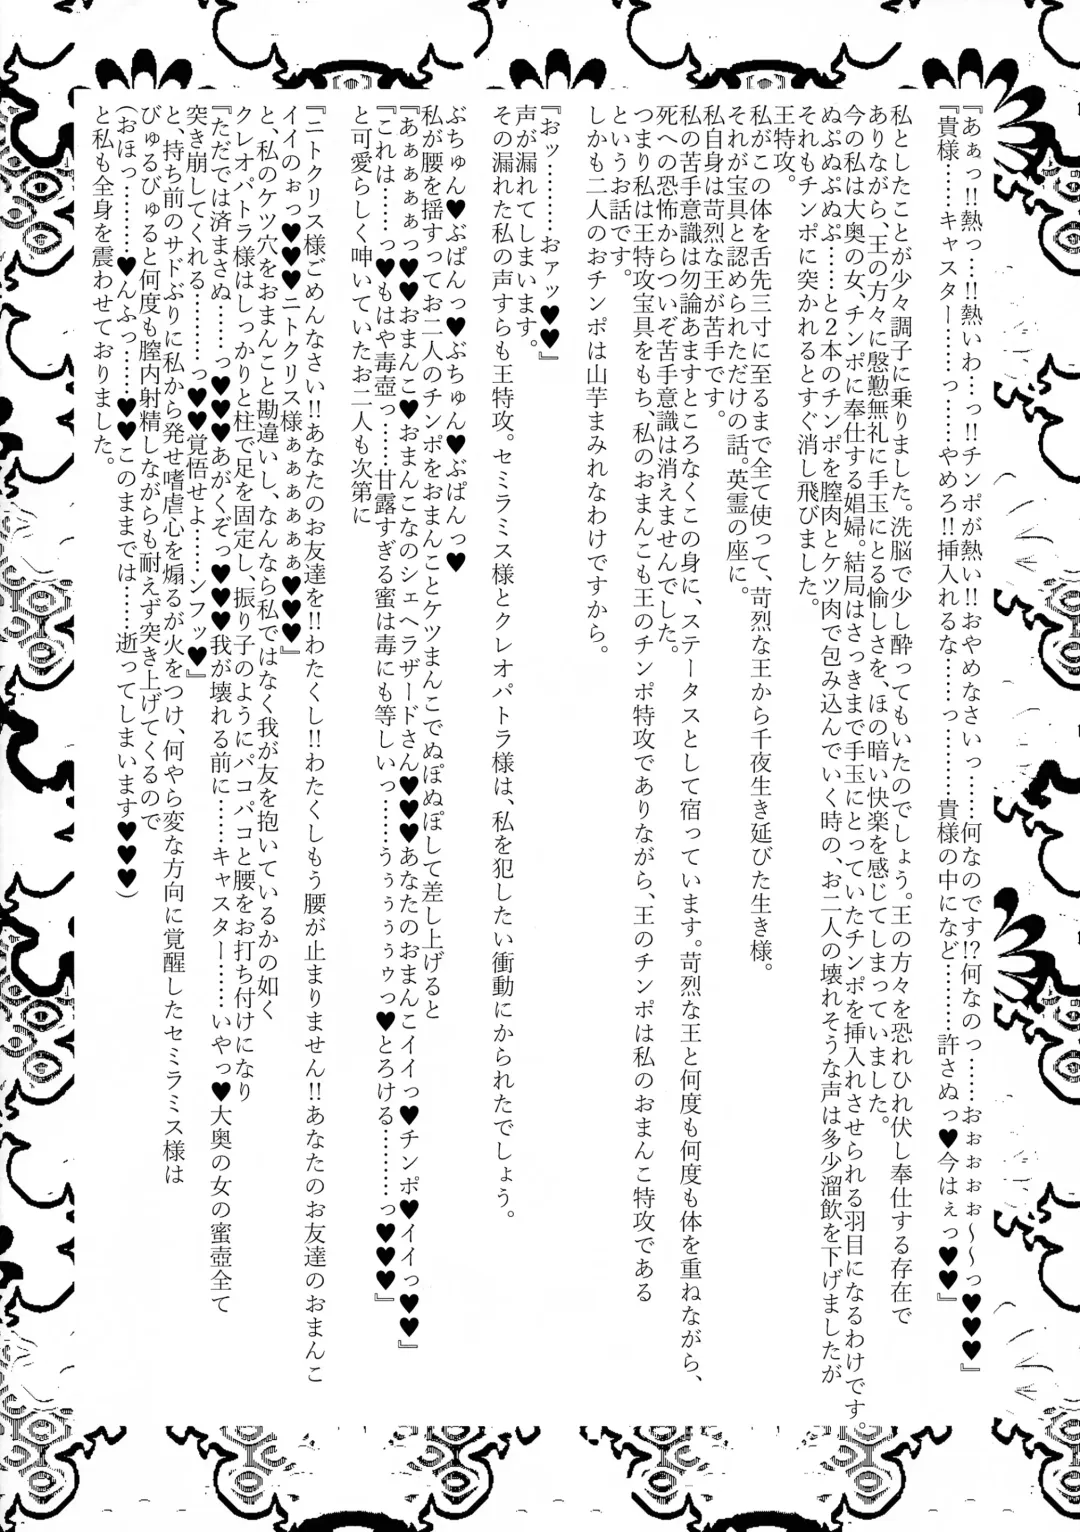 『あぁっ!!熱っ…!!熱いわ…っ!!チンポが熱い!!おやめなさいっ……何なのです!?何なのっ……おぉぉぉぉ～～っ♥♥♥』
『貴様……キャスター……っ……やめろ!!挿入れるな……っ………貴様の中になど………許さぬっ♥今はぇっ♥♥』
私としたことが少々調子に乗りました。洗脳で少し酔ってもいたのでしょう。王の方々を恐れひれ伏し奉仕する存在で
ありながら、王の方々に慇懃無礼に手玉にとる愉しさを、ほの暗い快楽を感じてしまっていました。
今の私は大奥の女、チンポに奉仕する娼婦。結局はさっきまで手玉にとっていたチンポを挿入れさせられる羽目になるわけです。
ぬぷぬぷぬぷ……と2本のチンポを膣肉とケツ肉で包み込んでいく時の、お二人の壊れそうな声は多少溜飲を下げましたが
それもチンポに突かれるとすぐ消し飛びました。
王特攻。
私がこの体を舌先三寸に至るまで全て使って、苛烈な王から千夜生き延びた生き様。
それが宝具と認められただけの話。英霊の座に。
私自身は苛烈な王が苦手です。
私の苦手意識は勿論あますところなくこの身に、ステータスとして宿っています。苛烈な王と何度も何度も体を重ねながら、
死への恐怖からついぞ苦手意識は消えませんでした。
つまり私は王特攻宝具をもち、私のおまんこも王のチンポ特攻でありながら、王のチンポは私のおまんこ特攻である
というお話です。
しかも二人のおチンポは山芋まみれなわけですから。
『おッ………おァッ♥♥』
声が漏れてしまいます。
その漏れた私の声すらも王特攻。セミラミス様とクレオパトラ様は、私を犯したい衝動にかられたでしょう。
ぶちゅん♥ぶぱんっ♥ぶちゅん♥ぶぱんっ♥
私が腰を揺すってお二人のチンポをおまんことケツまんこでぬぽぬぽして差し上げると
『あぁぁぁぁっ♥♥おまんこ♥おまんこなのシェヘラザードさん♥♥♥あなたのおまんこイイっ♥チンポ♥イイっ♥♥』
『これは……っ♥もはや毒壺っ……甘露すぎる蜜は毒にも等しいっ……うぅぅぅぅゥっ♥とろける………っ♥♥♥』
と可愛らしく呻いていたお二人も次第に
『ニトクリス様ごめんなさい!!あなたのお友達を!!わたくし!!わたくしもう腰が止まりません!!あなたのお友達のおまんこ
イイのぉっ♥♥♥ニトクリス様ぁぁぁぁぁぁ♥♥♥』
と、私のケツ穴をおまんこと勘違いし、なんなら私ではなく我が友を抱いているかの如く
クレオパトラ様はしっかりと柱で足を固定し、振り子のようにパコパコと腰をお打ち付けになり
『ただでは済まさぬ……っ♥♥♥あがくぞっ♥♥♥我が壊れる前に……キャスター……いやっ♥大奥の女の蜜壺全て
突き崩してくれる………っ♥♥♥覚悟せよ……ンフッ♥』
と、持ち前のサドぶりに私から発せ嗜虐心を煽るが火をつけ、何やら変な方向に覚醒したセミラミス様は
びゅるびゅると何度も膣内射精しながらも耐えず突き上げてくるので
(おほっ………♥んふっ……♥♥このままでは……逝ってしまいます♥♥♥)
と私も全身を震わせておりました。